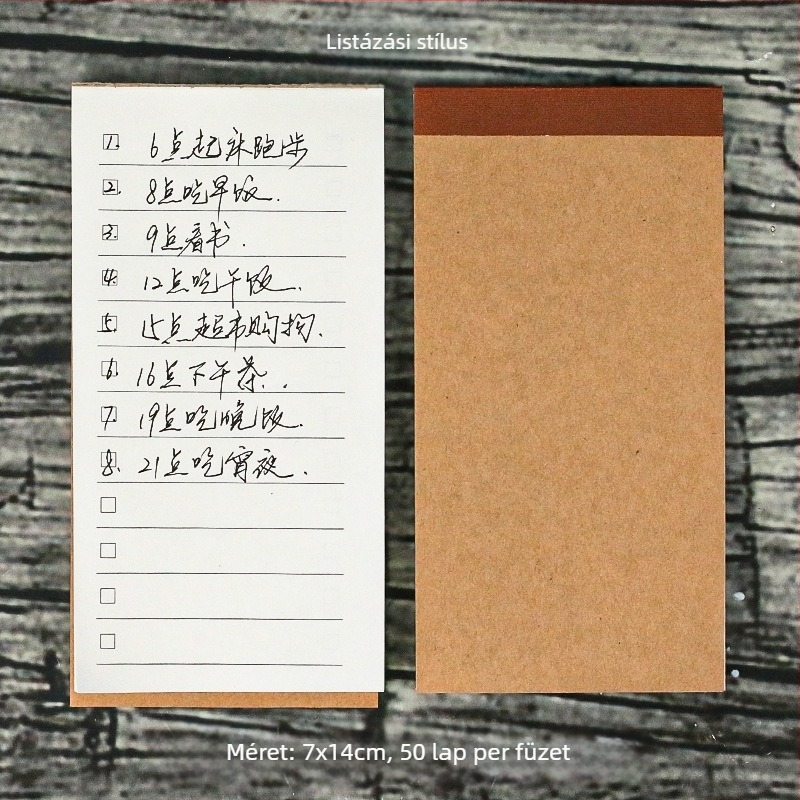 Listázási stílus
1. 6点起床跑步
2. 8点吃早饭.
3. 9点看书.
4. 12点吃午饭.
5. 15点超市购物.
6. 16点下午茶.
7. 19点吃晚饭.
8. 21点吃宵夜.
Méret: 7x14cm, 50 lap per füzet